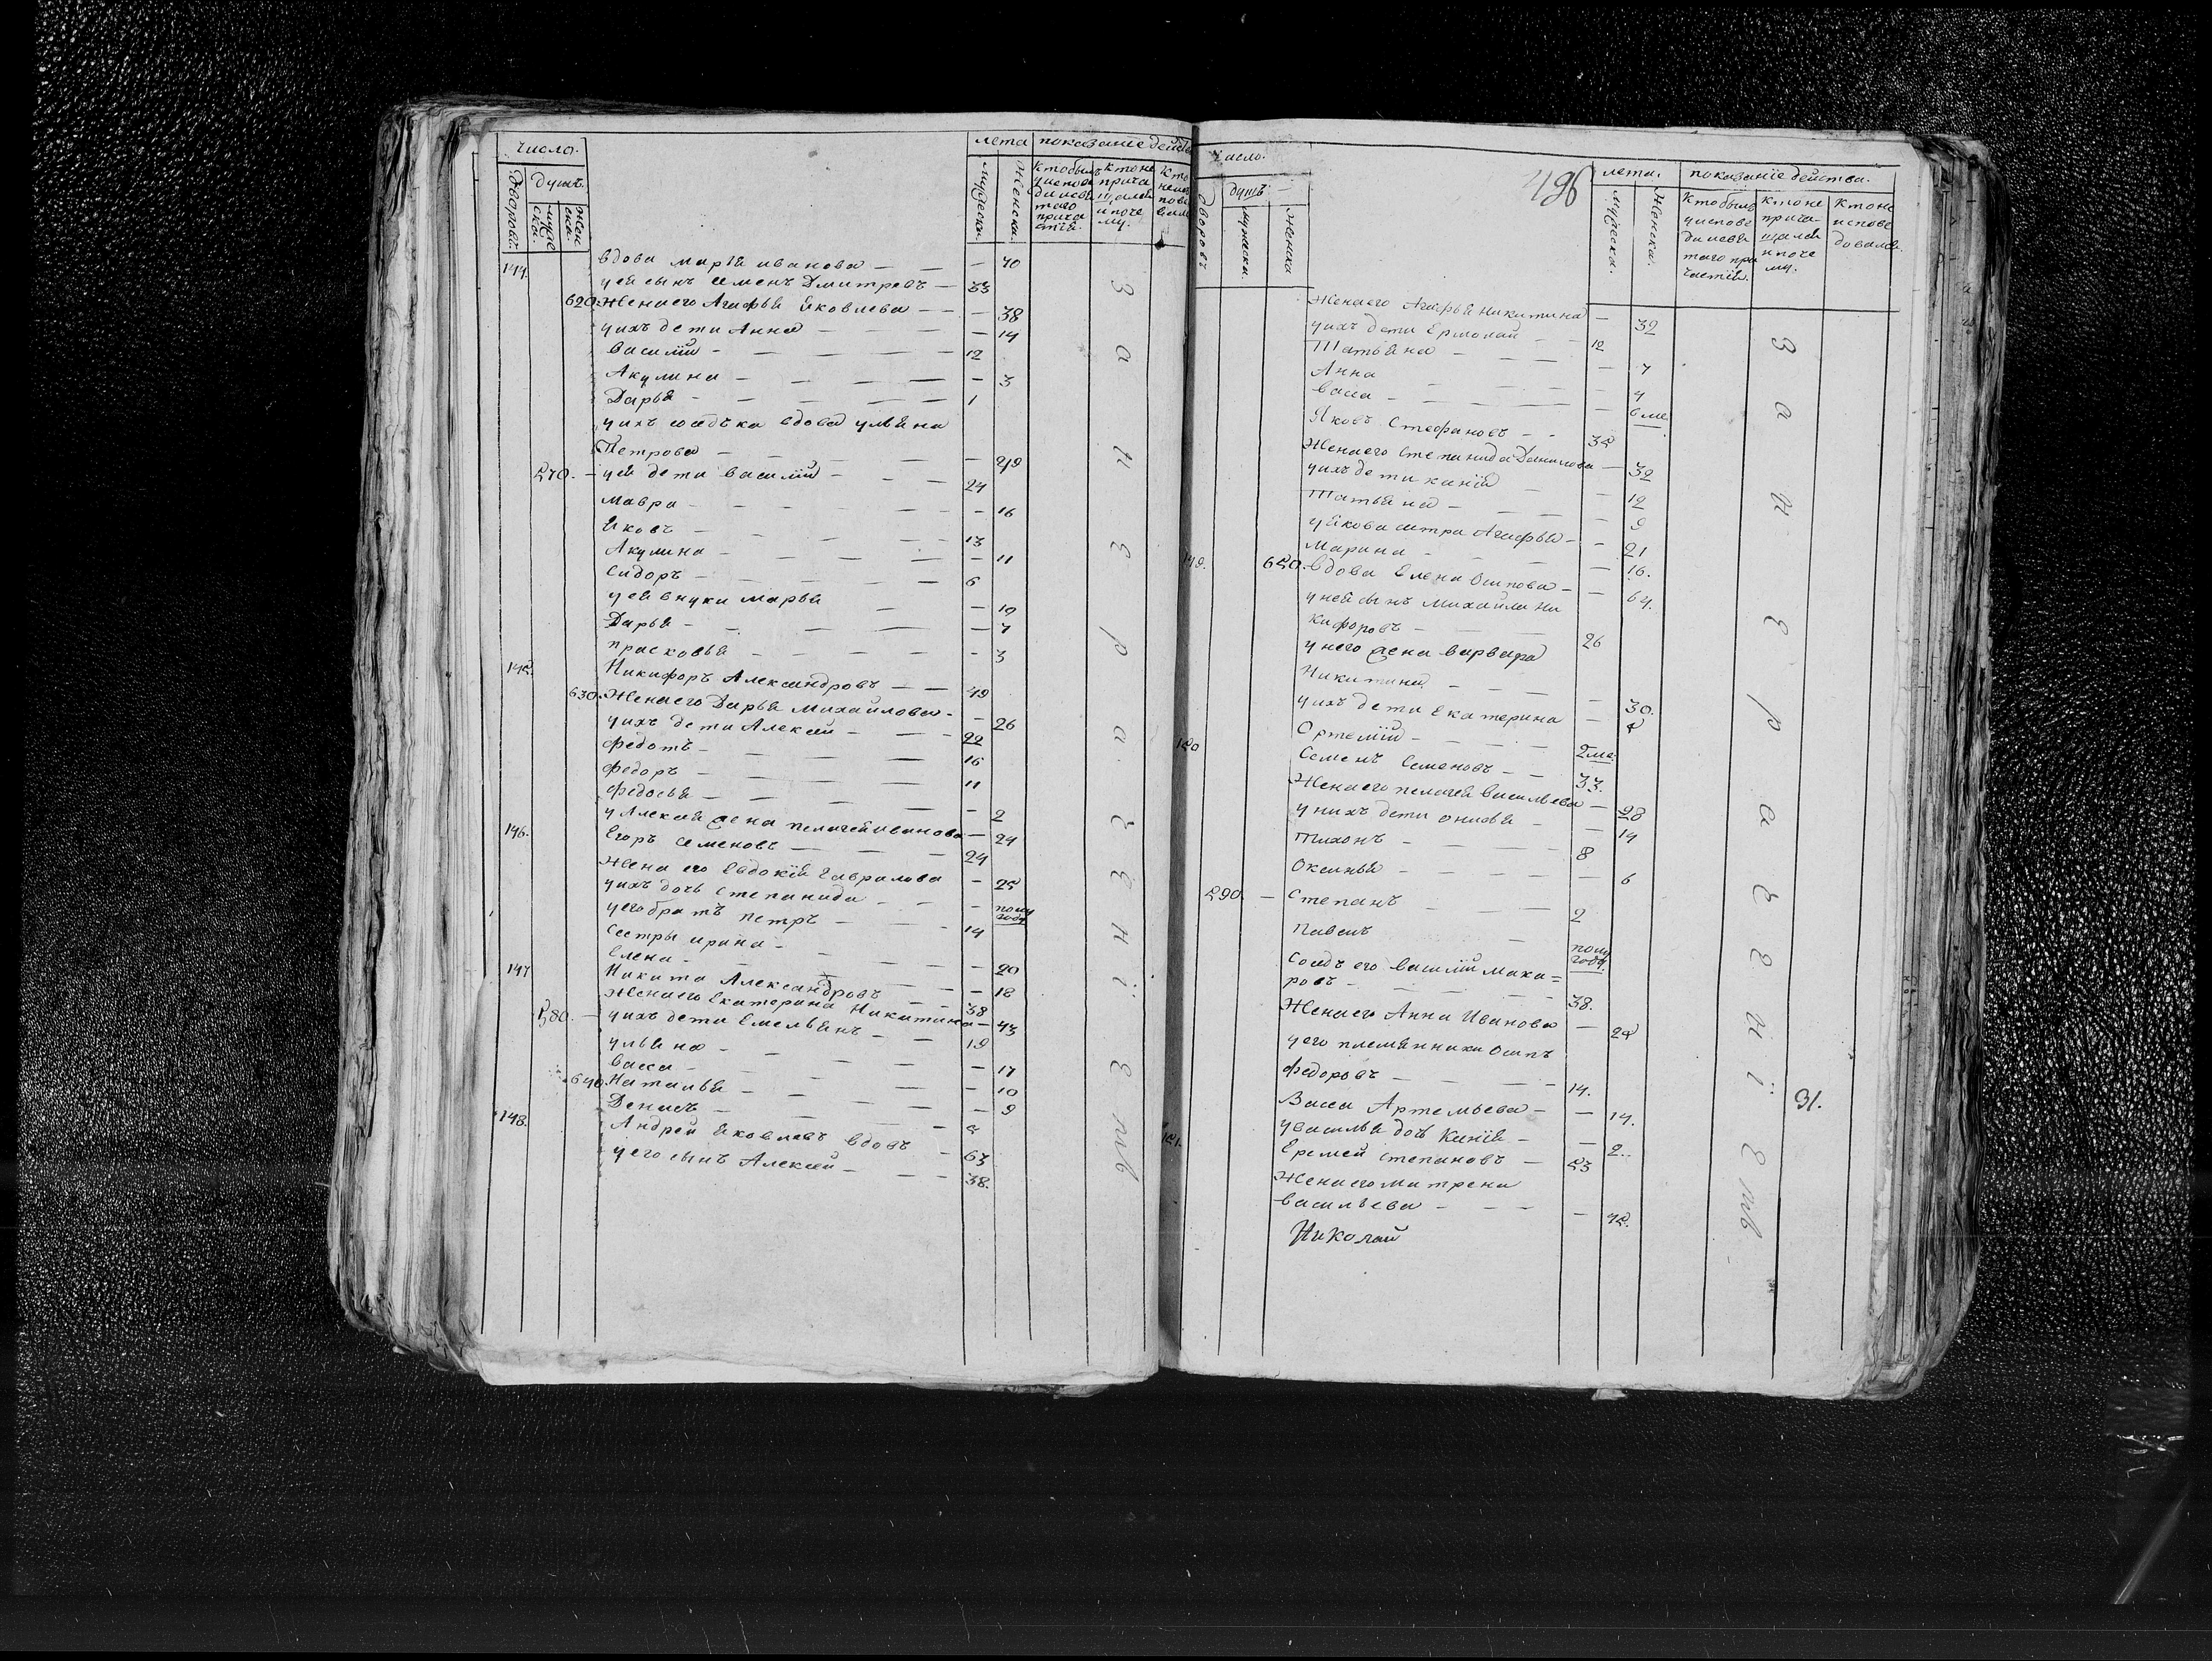 числа.
душъ.
дворовъ.
муже
ска.
жен
ска.
лета
показание действ
мужеска.
женска.
кто былъ
у испове
ди и свя
таго
прича
стiя.
кто не
прича
щался
и поче
му.
144.
вдова марья иванова — — 70
у ей сынъ семенъ Дмитревъ — 33
620. Жена его Агафья яковлева — — 38
у ихъ дети Анна — — 14
василiй — — — — 12
Акулина — — — — 3
Дарья — — — — 1
у ихъ соседка вдова ульяна
Петрова — — — — 49
570. — у ей дети василiй — — — 24
мавра — — — — 16
яковъ — — — — 13
Акулина — — — — 11
сидоръ — — — — 6
у ей внуки марья — — 10
Дарья — — — — 7
прасковья — — — — 3
145. Никифоръ Александровъ — — 49
630. Жена его Дарья михайлова — — 26
у ихъ дети Алексей — — 22
федотъ — — — — 16
федоръ — — — — 11
федосья — — — — 2
у Алексея жена пелагея иванова — 24
146. Егоръ семеновъ — — — 24
жена его Евдокiя гаврилова — 25
у ихъ дочь степанида — — — полу
году
у его братъ петръ — — — 14
сестры ирина — — — 20
Елена — — — — 18
147 Никита Александровъ — — 38
Жена его екатерина Никитина — 43
580. — у ихъ дети емельянъ — — 19
ульяна — — — — 17
васса — — — — 10
640. Наталья — — — — 9
Денисъ — — — — 5
148. Андрей яковлевъ вдовъ — 63
у его сынъ Алексей — — — 38.
з а н е р а д е н i е мъ
число.
дворовъ
душъ
мужска
женска
496
лета.
показанiе действа.
мужеска.
женска.
кто былъ
у испове
ди и свя
таго при
частiя.
кто не
прича
щался
и поче
му.
кто не
испове
довался.
Жена его Агафья никитина — 32
у ихъ дети Ермолай — — 12
Татьяна — — — 7
Анна — — — 4
васса — — — 6 ме
Яковъ Стефановъ — — 35
Жена его степанида Данилова — 32
у ихъ дети — — 12
Татьяна — — — 9
у якова сестра Агафья — — 21
Марина — — — 16.
149. 650. вдова Елена Осипова — — 64.
у ней сынъ михайла Ни
кифоровъ — — — 26
у него жена варвара
Никитина — — — 30.
у ихъ дети екатерина — 5
Ортемiй — — — 2 ме.
150 Семенъ Семеновъ — — 33.
Жена его пелагея васильева — 28
у нихъ дети — — 14
Тихонъ — — — 8
Оксинья — — — 6
590. — Степанъ — — — 2
Павелъ — полу
году.
соседъ его василiй мака=
ровъ — — — 38.
Жена его Анна Иванова — 25
у его племянники осипъ
федоровъ — — — 14.
Васса Артемьева — — 14.
у василья дочь — — 2.
151. Еремей степановъ — 53
Жена его матрена
васильева — — — 45.
Николай
з а н е р а д е н i е мъ
31.